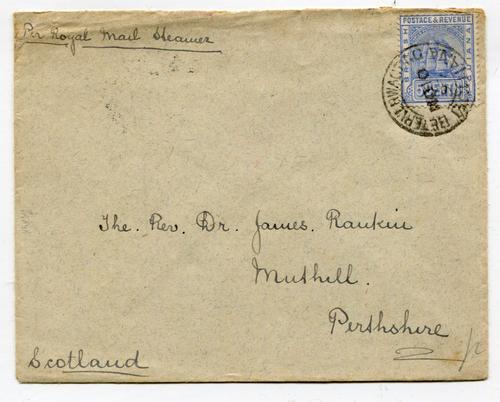 Per Royal Mail Steamer
POSTAGE & REVENUE
BETERVERWAGTING
The. Rev. Dr. James. Rankin
Muthill.
Perthshire
Scotland